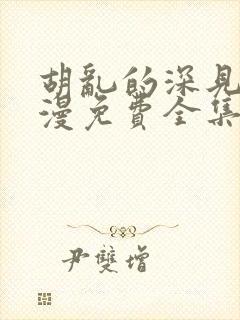 胡亂的深見
漫免費全集
尹雙增